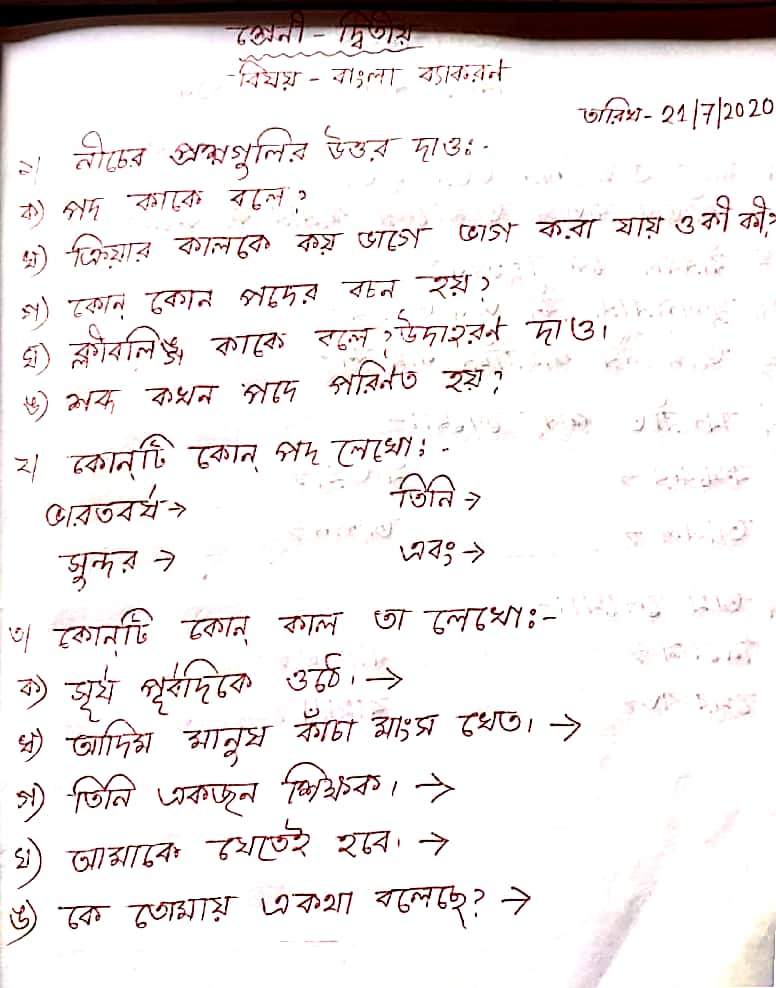 শ্রেনী - দ্বিতীয়
বিষয় - বাংলা ব্যাকরন
তারিখ - 21/7/2020
১| নীচের প্রশ্নগুলির উত্তর দাওঃ-
ক) পদ কাকে বলে?
খ) ক্রিয়ার কালকে কয় ভাগে ভাগ করা যায় ও কী কী?
গ) কোন্ কোন পদের বচন হয়?
ঘ) ক্লীবলিঙ্গ কাকে বলে? উদাহরন দাও।
ঙ) শব্দ কখন পদে পরিনত হয়?
২| কোন্‌টি কোন্ পদ লেখোঃ-
ভারতবর্ষ → তিনি →
সুন্দর → এবং →
৩| কোন্‌টি কোন্ কাল তা লেখোঃ-
ক) সূর্য পূর্বদিকে ওঠে। →
খ) আদিম মানুষ কাঁচা মাংস খেত। →
গ) তিনি একজন শিক্ষক। →
ঘ) আমাকে যেতেই হবে। →
ঙ) কে তোমায় একথা বলেছে? →